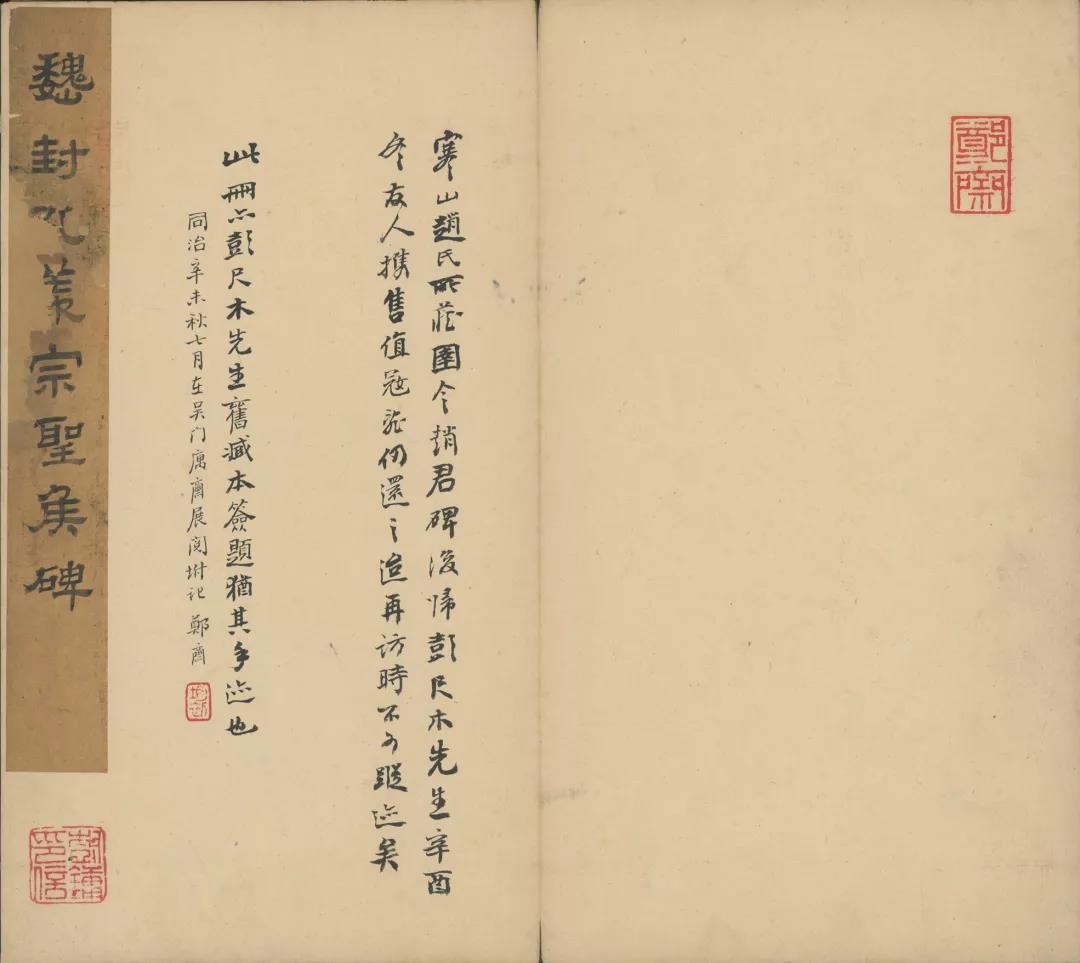 鄭齋
寒山趙氏所藏圉令趙君碑後歸彭尺木先生辛酉
冬友人攜售值寇氛仍還之迨再訪時不可蹤迹矣
此冊亦彭尺木先生舊藏本簽題猶其手迹也
同治辛未秋七月在吳门寓齋展閱坿記 鄭齋
魏封孔羨宗聖矦碑